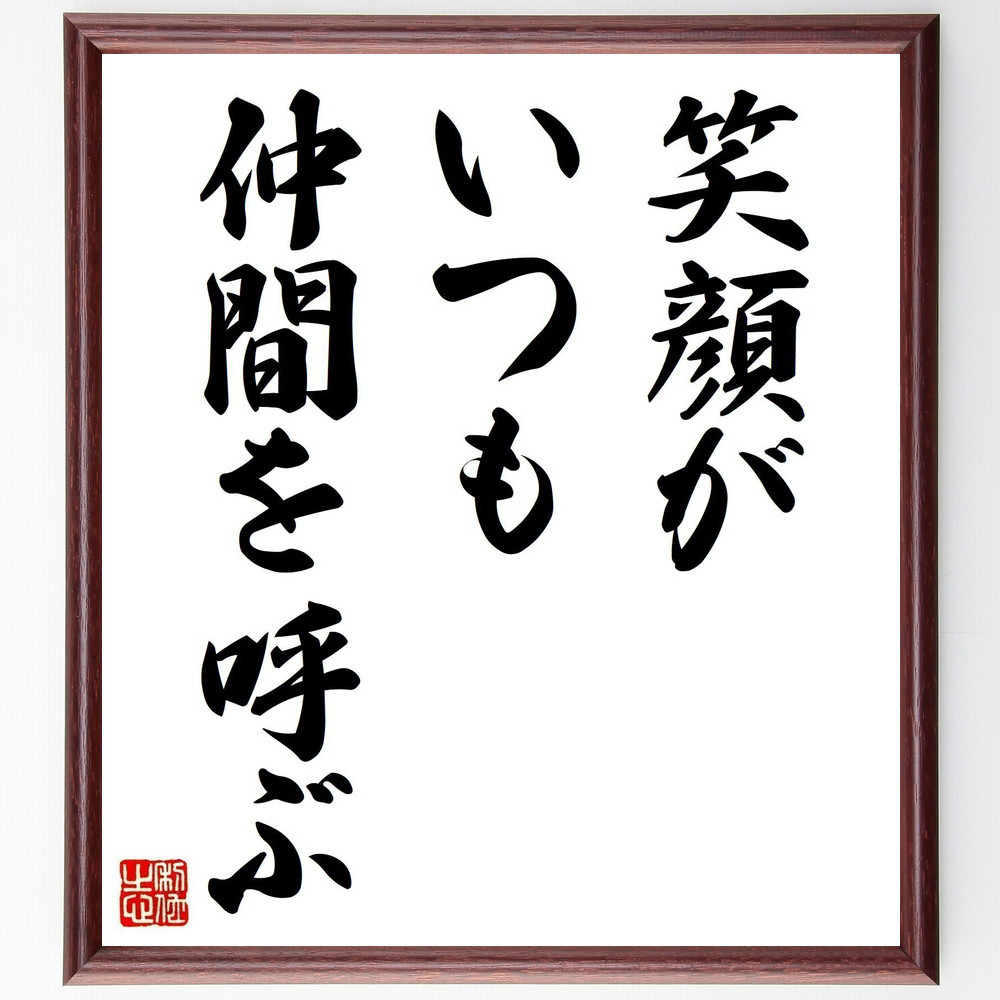 笑顔が
いつも
仲間を呼ぶ